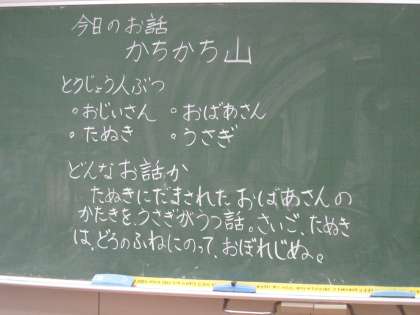 今日のお話
かちかち山
とうじょう人ぶつ
。おじいさん 。おばあさん
。たぬき 。うさぎ
どんなお話か
たぬきにだまされたおばあさんの
かたきを、うさぎがうつ話。さいご、たぬき
は、どろのふねにのって、おぼれじぬ。